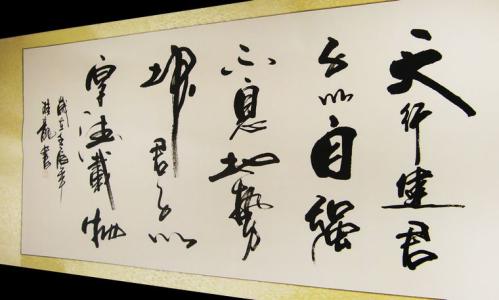 天行健君
子以自强
不息地勢
坤君子以
厚德載物
歲在年
龍書